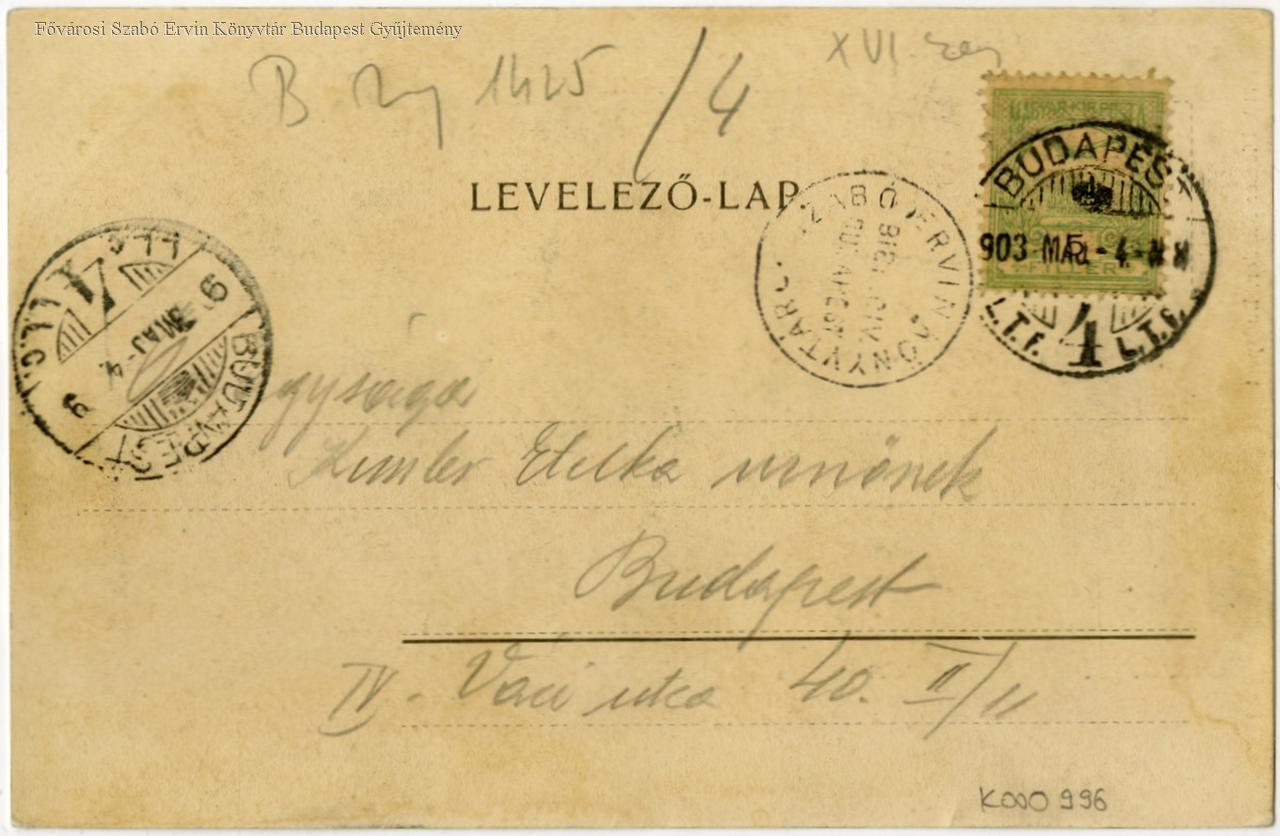 Fővárosi Szabó Ervin Könyvtár Budapest Gyűjtemény
B 1425 /4
XVI.
LEVELEZŐ-LAP
MAGYAR KIR. POSTA
5
FILLÉR
BUDAPEST
903 MÁJ -4
L.T.F. 4 L.T.F.
SZABÓ ERVIN KÖNYVTÁR
BUDAPEST
BUDAPEST
9 MAJ -4. 9
Nagysága
Etelka urnőnek
Budapest
IV. Váci utca 40. II/11
K000996